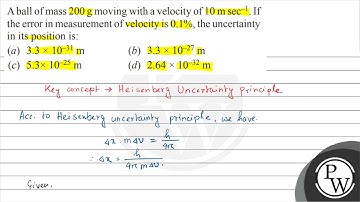 A ball of mass 200 g moving with a velocity of 10 m sec⁻¹. If
the error in measurement of velocity is 0.1%, the uncertainty
in its position is:
(a) 3.3 × 10⁻³¹ m (b) 3.3 × 10⁻²⁷ m
(c) 5.3 × 10⁻²⁵ m (d) 2.64 × 10⁻³² m
Key concept → Heisenberg Uncertainty principle
Acc. to Heisenberg uncertainty principle, we have.
Δx · mΔv = h/4π
∴ Δx = h/4π mΔv.
Given.
PW